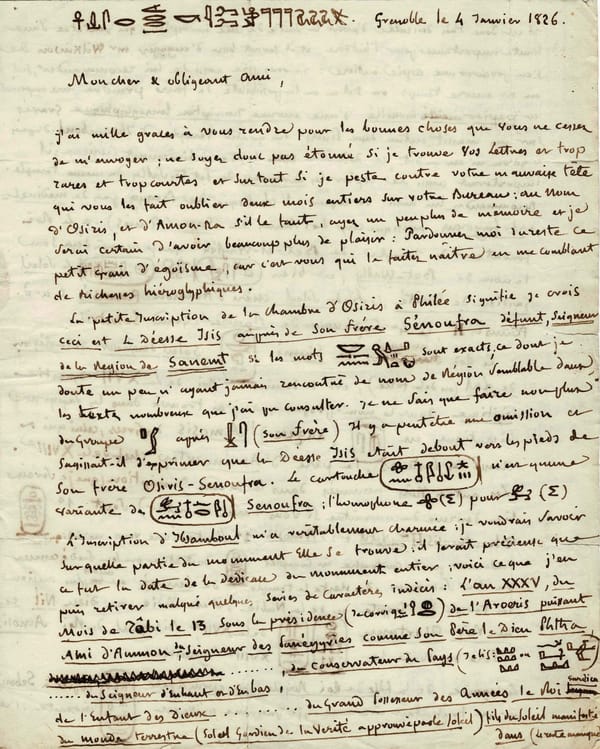 Grenoble le 4 Janvier 1826.
Mon cher & obligeant Ami,
j'ai mille graces à vous rendre pour les bonnes choses que vous ne cessez
de m'envoyer ; ne soyez donc pas étonné si je trouve vos lettres er trop
rares et trop courtes et surtout si je peste contre votre mauvaise tête
qui vous les fait oublier deux mois entiers sur votre Bureau ; au nom
d'Osiris, et d'Amon-ra s'il le faut, ayez un peu plus de mémoire et je
serai certain d'avoir beaucoup plus de plaisir : Pardonnez moi du reste ce
petit grain d'égoïsme, car c'est vous qui la faites naître en me comblant
de richesses hiéroglyphiques.
La petite Inscription de la chambre d'Osiris à Philée signifie je crois
ceci est La Déesse Isis auprès de Son frere Sénoufra défunt, Seigneur
de la Région de Sanemt si les mots sont exacts, ce dont je
doute un peu n'ayant jamais rencontré de nom de Région semblable dans
les texte nombreux que j'ai pu consulter. je ne sais que faire non plus
du Groupe après (son frère) Il y a peut être une omission et
s'agissait-il d'exprimer que la Déesse Isis était debout vers les pieds de
Son frère Osiris-Senoufra. Le cartouche n'est qu'une
variante de Senoufra ; l'homophone (Σ) pour (Σ)
L'Inscription d'Ibsamboul m'a véritablement charmée : je voudrais savoir
sur quelle partie du monument Elle se trouve : il serait précieux que
ce fut la date de la dédicace du monument entier ; voici ce que j'en
puis retirer malgré quelques séries de caractères indécis : L'an XXXV, du
Mois de Tôbi le 13 sous la présidence (je corrige) de l'Aroeris puissant
Ami d'Ammon du Seigneur des Panégyries comme son Père le Dieu Phtha,
du conservateur du Pays (je lis: ou )
du Seigneur d'Enhaut et d'Enbas,
de l'Enfant des Dieux du Grand Possesseur des Années le Roi Gardien
du monde terrestre (Soleil Gardien de la Verité approuvé par le Soleil) fils du Soleil manifesté
dans (le reste manque